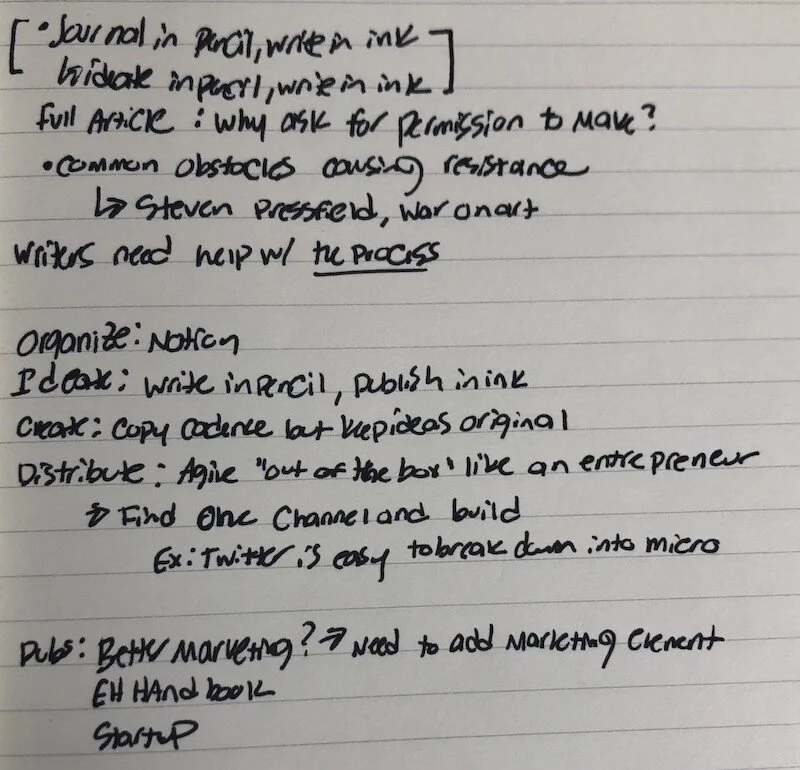 [ • Journal in pencil, write in ink ]
↳ ideate in pencil, write in ink
Full Article : Why ask for permission to make?
• common obstacles causing resistance
↳ Steven Pressfield, War on art
Writers need help w/ the process
Organize: Notion
Ideate: write in pencil, publish in ink
Create: Copy cadence but keep ideas original
Distribute: Agile "out of the box" like an entrepreneur
→ Find One Channel and build
Ex: Twitter is easy to break down into micro
Pubs: Better Marketing? → Need to add Marketing Element
EH Handbook
Startup